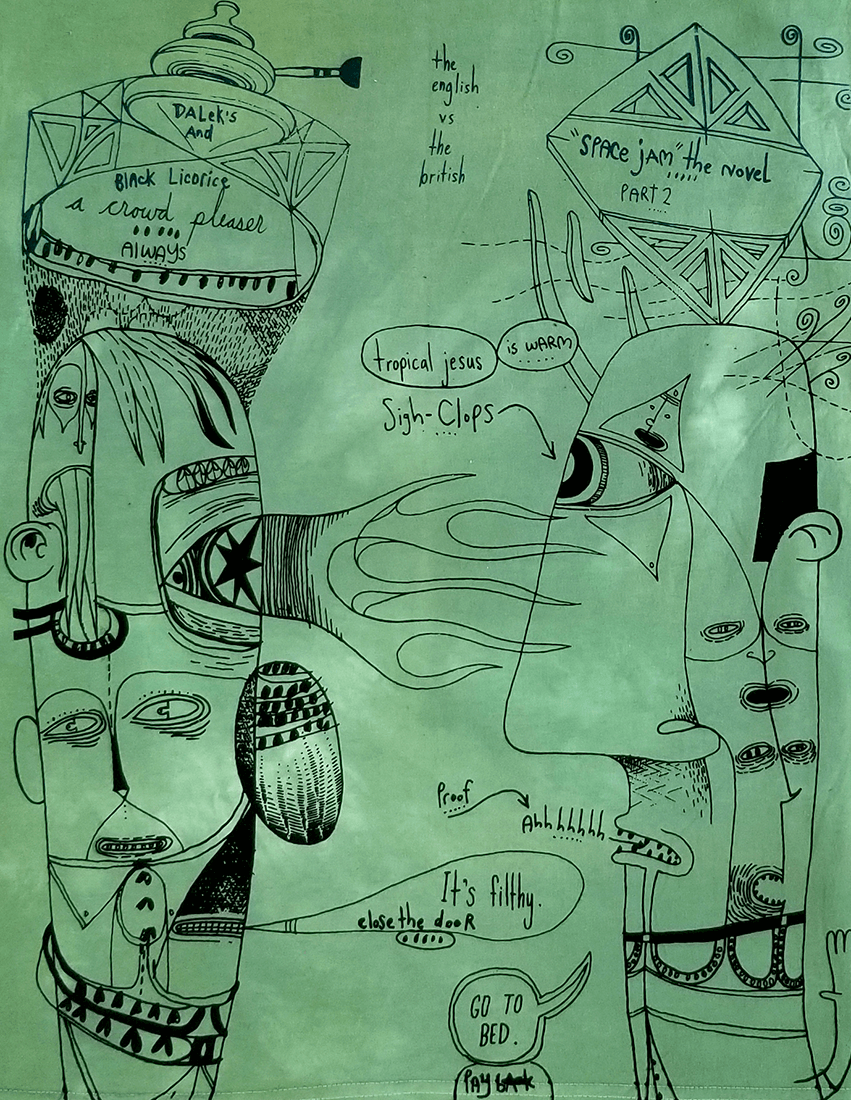 DALek's
And
Black Licorice
a crowd pleaser
AlWAYS
the
english
vs
the
british
"SPACE jAM" the Novel
PART 2
tropical jesus
is WARM
Sigh-Clops
Proof
Ahhhhhhh
It's filthy.
close the dooR
GO TO
BED.
PAY bAck